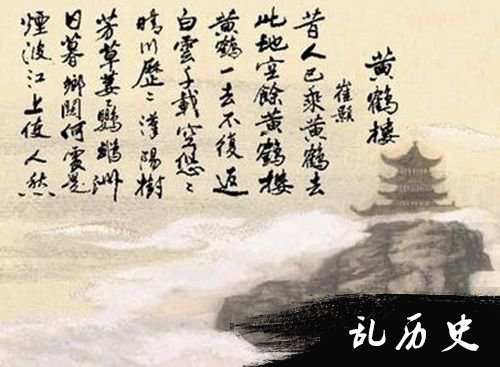 黄鶴樓
崔顥
昔人已乘黄鶴去
此地空餘黄鶴樓
黄鶴一去不復返
白雲千載空悠〻
晴川歷〻漢陽樹
芳草萋〻鸚鵡洲
日暮鄉關何處是
煙波江上使人愁
乱历史